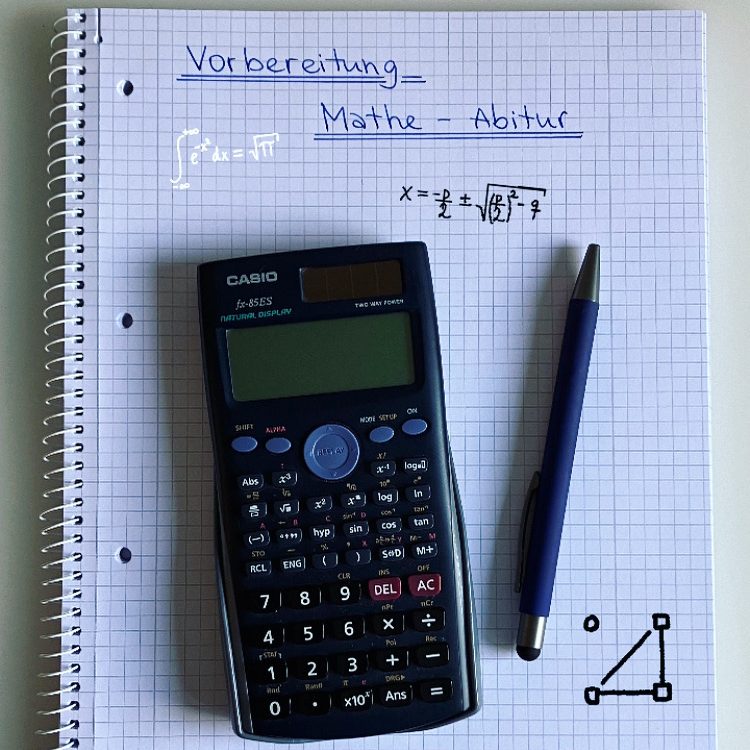 Vorbereitung
Mathe - Abitur
∫_{-∞}^{+∞} e^{-x²} dx = √π
x = -p/2 ± √((p/2)² - q)
CASIO
fx-85ES
NATURAL DISPLAY
TWO WAY POWER
SHIFT ALPHA MODE SETUP ON
x!
Abs x³ x⁻¹ log
x² log ln
A B C sin⁻¹ D cos⁻¹ tan⁻¹
(−) °'" hyp sin cos tan
STO % M− M
RCL ENG ( ) S⇔D M+
CLR INS OFF
7 8 9 DEL AC
nPr nCr
4 5 6 × ÷
STAT Pol Rec
1 2 3 + −
Rnd Ran# π e DRG▸
0 . ×10ˣ Ans =